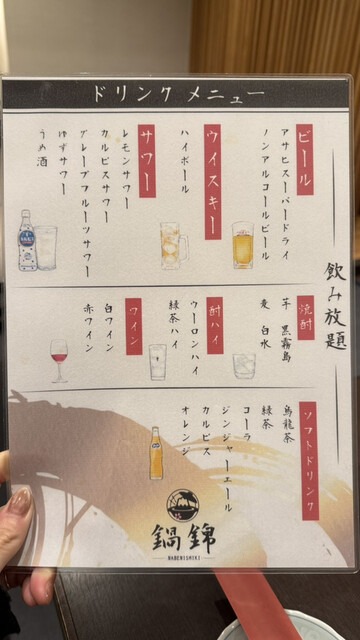 ドリンクメニュー
飲み放題
ビール
アサヒスーパードライ
ノンアルコールビール
ウイスキー
ハイボール
サワー
レモンサワー
カルピスサワー
グレープフルーツサワー
ゆずサワー
うめ酒
焼酎
芋 黒霧島
麦 白水
酎ハイ
ウーロンハイ
緑茶ハイ
ワイン
白ワイン
赤ワイン
ソフトドリンク
烏龍茶
緑茶
コーラ
ジンジャーエール
カルピス
オレンジ
鍋錦
NABENISHIKI